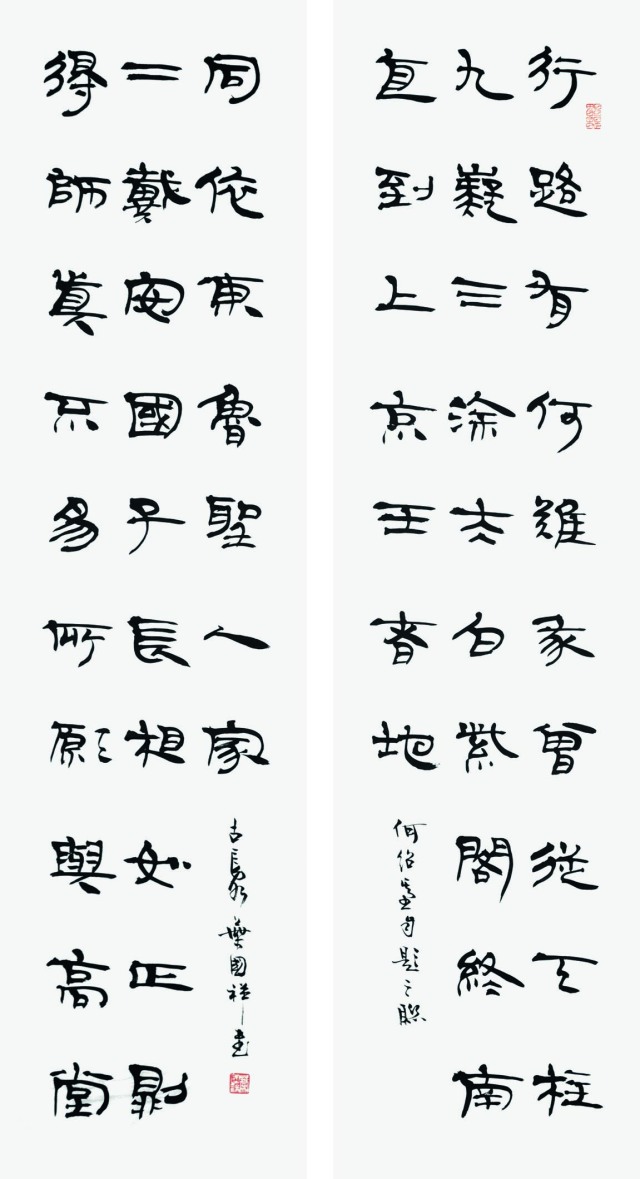 行路有何難曾從天柱
九嶷三涂太白紫閣終南
直到上京王者地
何紹基自題之聯
得師真不易所願與高堂
二戴安國子長相如正則
同依東魯聖人家
古葉國祥書